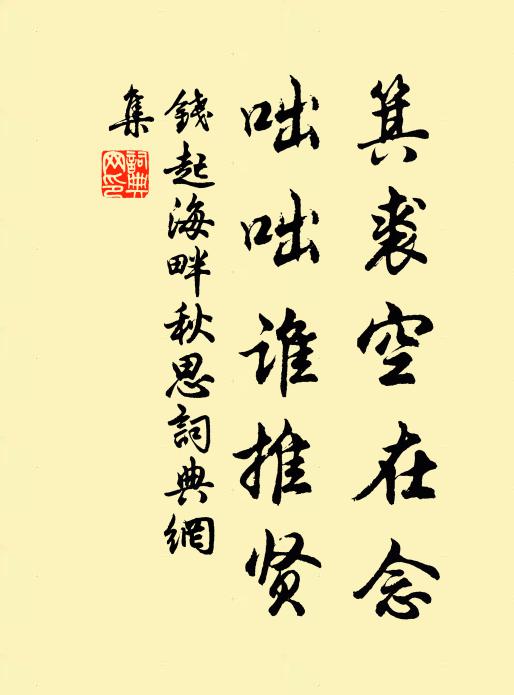 箕裘空在念
咄咄谁推贤
錢起海畔秋思詞典網
集
詞典
网印